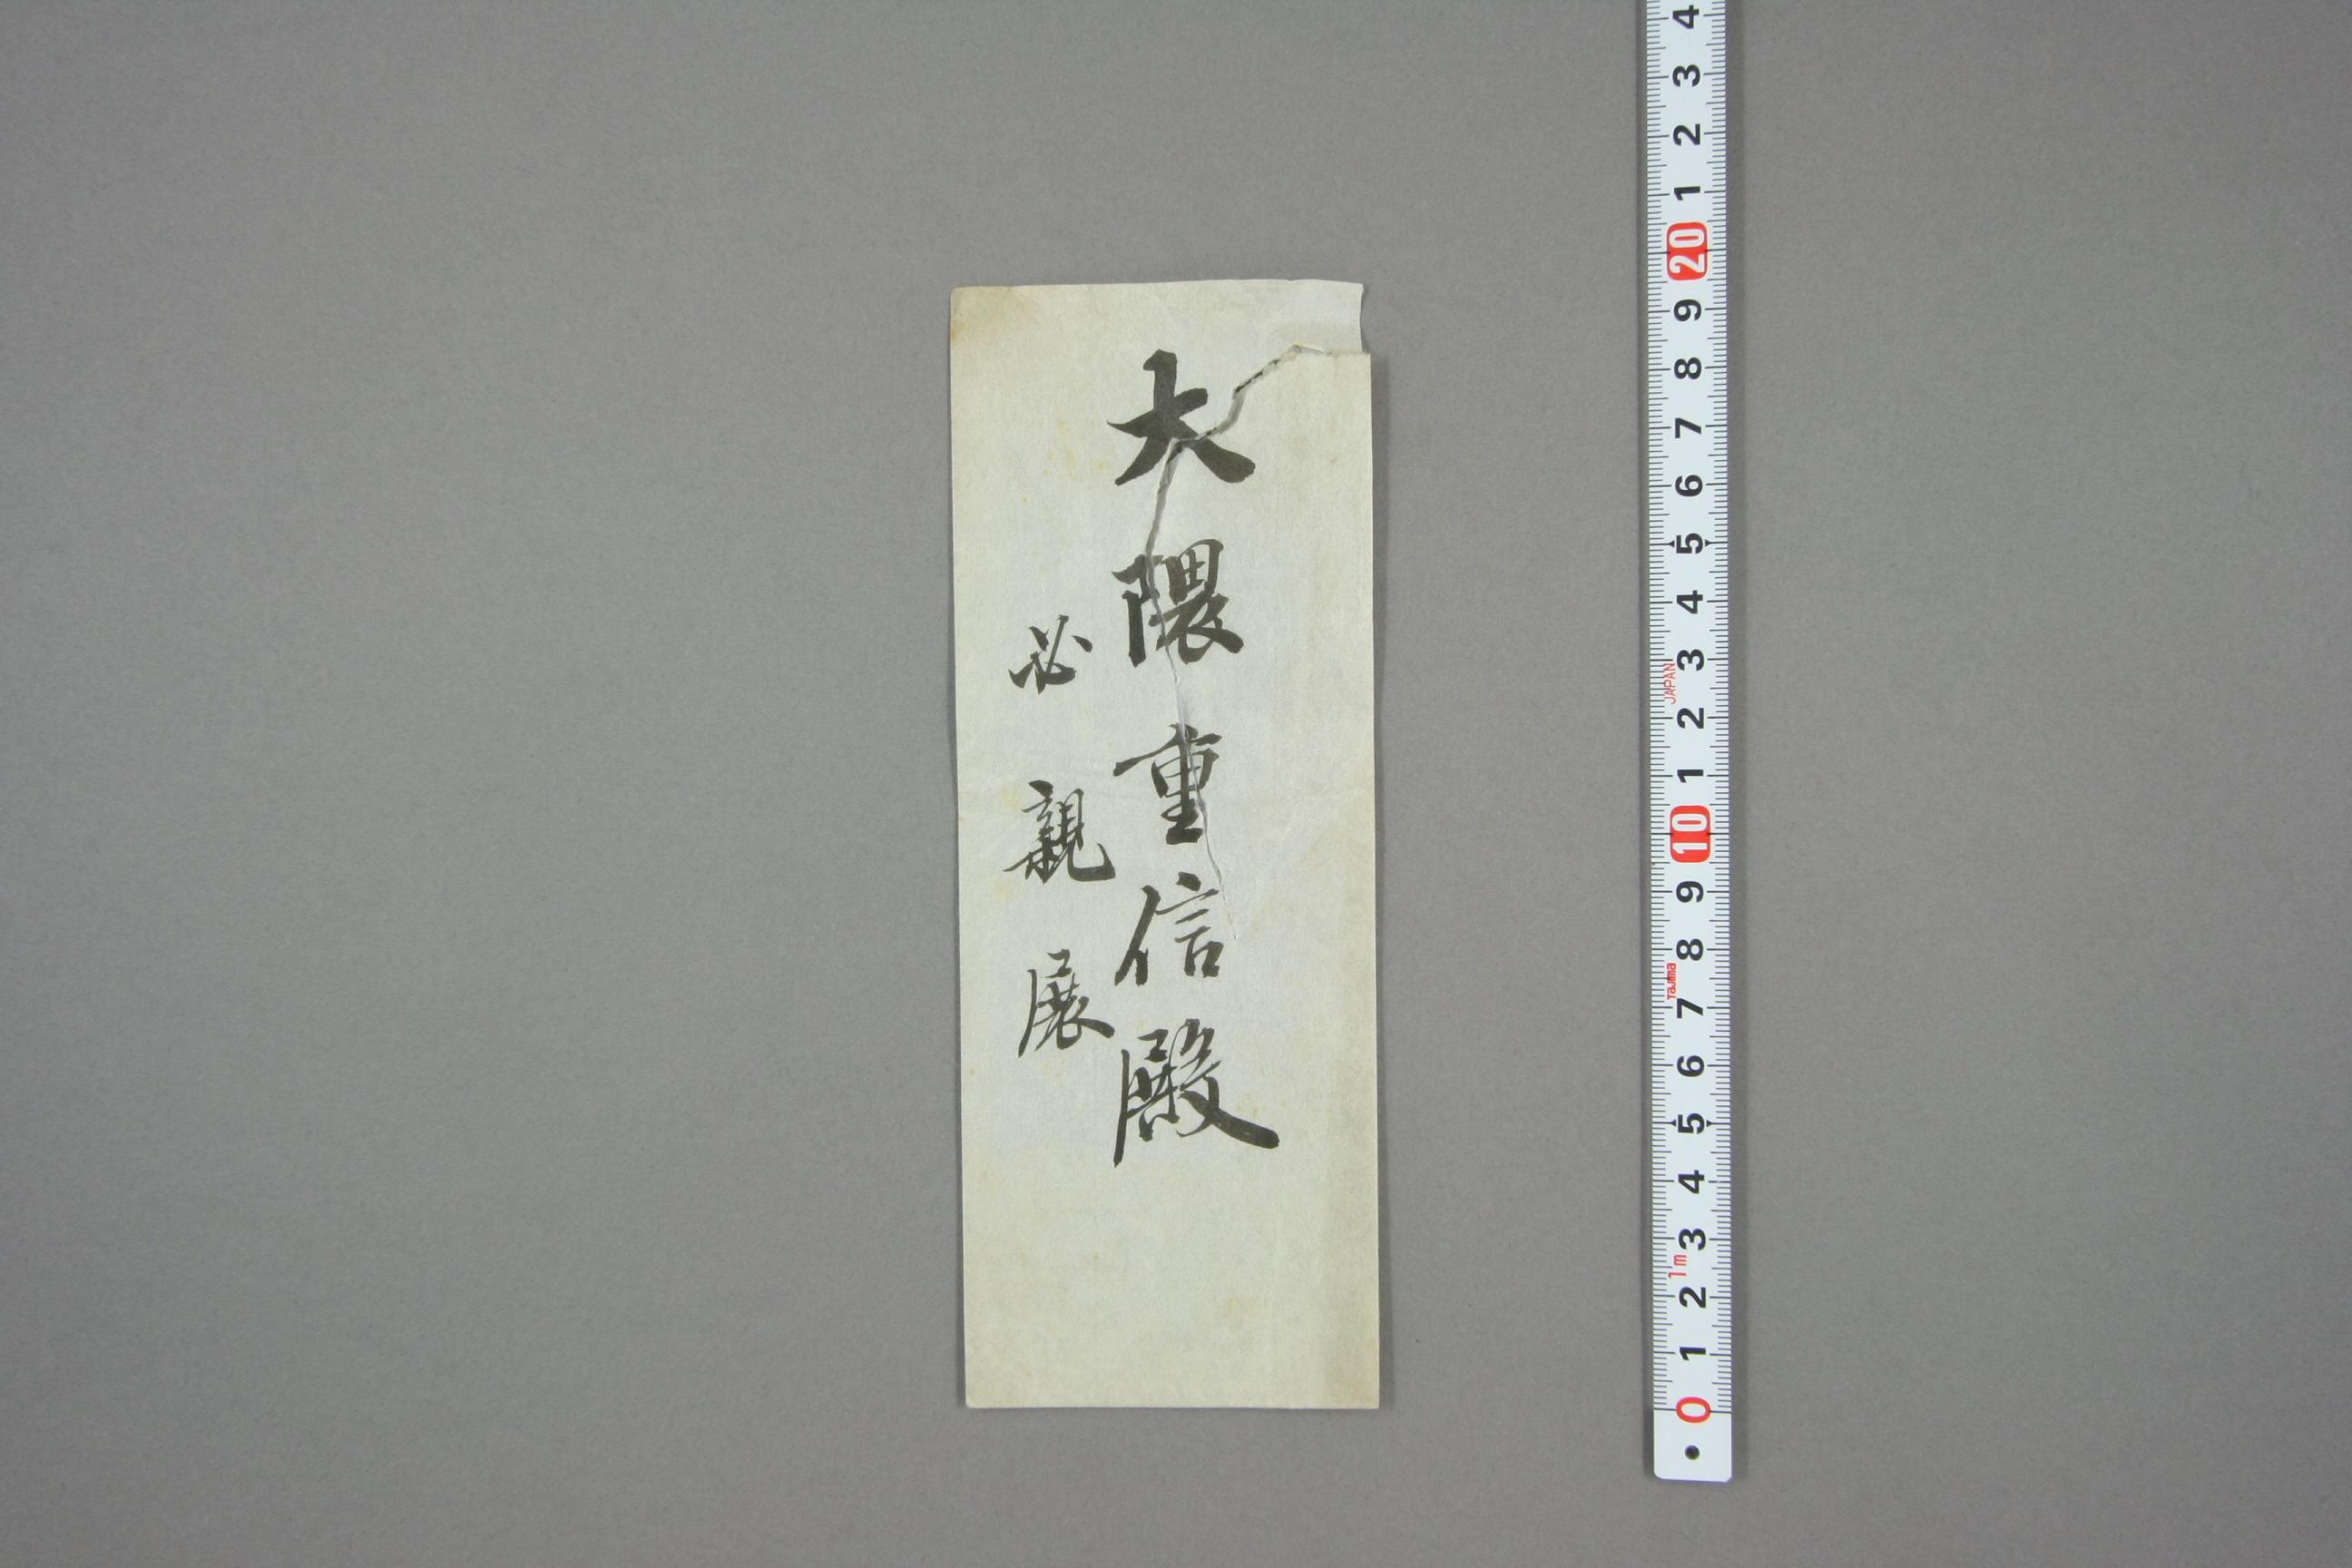 大隈重信殿
必親展
4
3
2
1
20
9
8
7
6
5
4
3
JAPAN
2
1
10
9
8
Tajima
7
6
5
4
3
1m
2
1
0